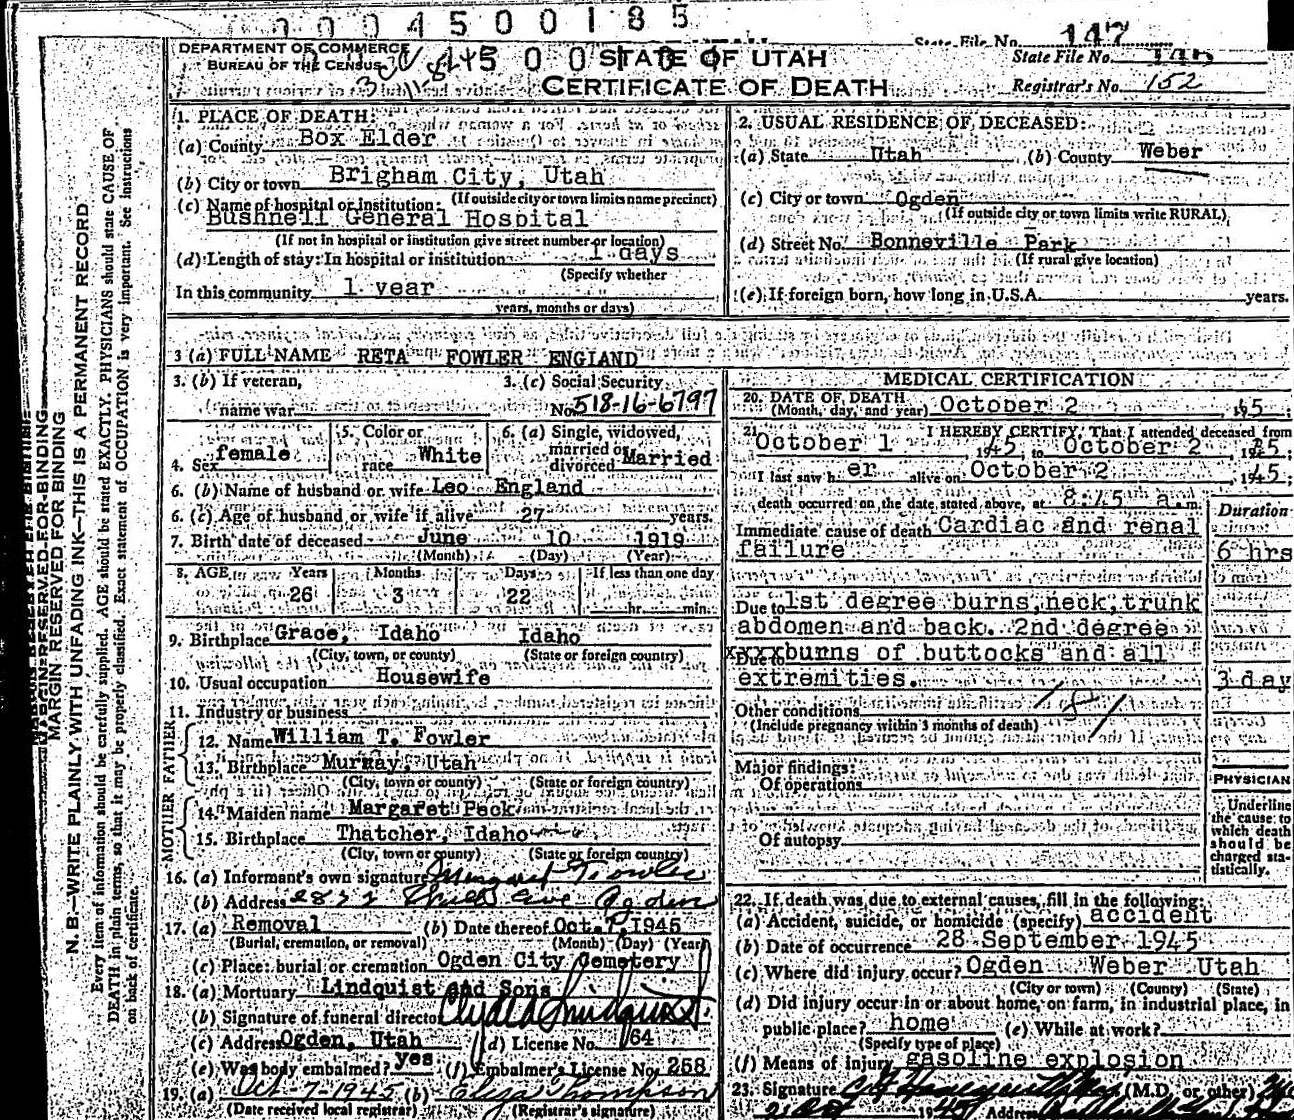 0004500185
State File No. 147
DEPARTMENT OF COMMERCE
BUREAU OF THE CENSUS
STATE OF UTAH
CERTIFICATE OF DEATH
State File No.
Registrar's No. 152
MARGIN RESERVED FOR BINDING
N. B.—WRITE PLAINLY WITH UNFADING INK—THIS IS A PERMANENT RECORD
Every item of information should be carefully supplied. AGE should be stated EXACTLY. PHYSICIANS should state CAUSE OF
DEATH in plain terms, so that it may be properly classified. Exact statement of OCCUPATION is very important. See instructions
on back of certificate.
1. PLACE OF DEATH:
(a) County Box Elder
(b) City or town Brigham City, Utah
(If outside city or town limits name precinct)
(c) Name of hospital or institution:
Bushnell General Hospital
(If not in hospital or institution give street number or location)
(d) Length of stay: In hospital or institution 1 days
(Specify whether
In this community 1 year
years, months or days)
2. USUAL RESIDENCE OF DECEASED:
(a) State Utah (b) County Weber
(c) City or town Ogden
(If outside city or town limits write RURAL)
(d) Street No. Bonneville Park
(If rural give location)
(e) If foreign born, how long in U.S.A. years.
3 (a) FULL NAME RETA FOWLER ENGLAND
3. (b) If veteran,
name war
3. (c) Social Security
No. 518-16-6797
4. Sex female
5. Color or
race White
6. (a) Single, widowed,
married or
divorced Married
6. (b) Name of husband or wife Leo England
6. (c) Age of husband or wife if alive 27 years.
7. Birth date of deceased June 10 1919
(Month) (Day) (Year)
8. AGE Years Months Days If less than one day
26 3 22 hr. min.
9. Birthplace Grace, Idaho Idaho
(City, town, or county) (State or foreign country)
10. Usual occupation Housewife
11. Industry or business
FATHER
12. Name William T. Fowler
13. Birthplace Murray, Utah
(City, town or county) (State or foreign country)
MOTHER
14. Maiden name Margaret Peck
15. Birthplace Thatcher, Idaho
(City, town or county) (State or foreign country)
16. (a) Informant's own signature Margaret Fowler
(b) Address Ave Ogden
17. (a) Removal (b) Date thereof Oct. 1945
(Burial, cremation, or removal) (Month) (Day) (Year)
(c) Place: burial or cremation Ogden City Cemetery
18. (a) Mortuary Lindquist and Sons
(b) Signature of funeral director Clyde Lindquist
(c) Address Ogden, Utah (d) License No. 164
(e) Was body embalmed? yes (f) Embalmer's License No. 268
19. (a) Oct-7-1945 (b) Thompson
(Date received local registrar) (Registrar's signature)
MEDICAL CERTIFICATION
20. DATE OF DEATH
(Month, day, and year) October 2, 1945;
21. I HEREBY CERTIFY, That I attended deceased from
October 1 1945, to October 2, 1945;
I last saw her alive on October 2, 1945;
death occurred on the date stated above, at 8:15 a.m.
Duration
Immediate cause of death Cardiac and renal
failure 6 hrs
Due to 1st degree burns, neck, trunk
abdomen and back. 2nd degree
Due to burns of buttocks and all
extremities. 3 day
Other conditions
(Include pregnancy within 3 months of death)
Major findings:
Of operations
Of autopsy
PHYSICIAN
Underline
the cause to
which death
should be
charged sta-
tistically.
22. If death was due to external causes, fill in the following:
(a) Accident, suicide, or homicide (specify) accident
(b) Date of occurrence 28 September 1945
(c) Where did injury occur? Ogden Weber Utah
(City or town) (County) (State)
(d) Did injury occur in or about home, on farm, in industrial place, in
public place? home (e) While at work?
(Specify type of place)
(f) Means of injury gasoline explosion
23. Signature (M.D. or other)
Address